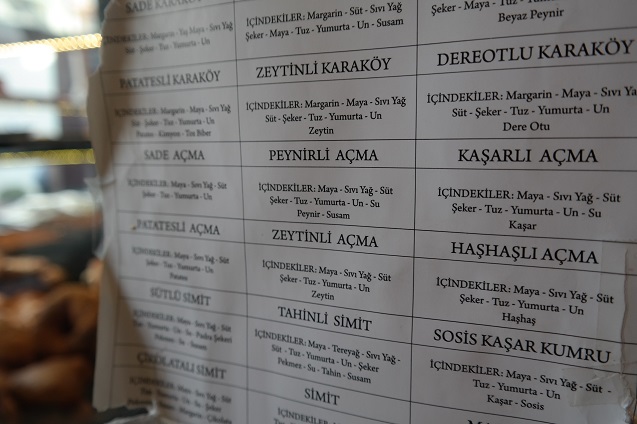 SADE KARAKÖY
İÇİNDEKİLER: Margarin -
Maya - Sıvı Yağ - Süt
Şeker - Tuz - Yumurta - Un
İÇİNDEKİLER: Margarin - Süt
Şeker - Maya - Tuz - Yumurta - Un - Susam
Şeker - Tuz - Yumurta - Un
Beyaz Peynir
PATATESLİ KARAKÖY
İÇİNDEKİLER: Margarin - Maya - Sıvı Yağ
Süt - Şeker - Tuz - Yumurta - Un
Patates - Tuz Biber
ZEYTİNLİ KARAKÖY
İÇİNDEKİLER: Margarin - Maya - Sıvı Yağ
Süt - Şeker - Tuz - Yumurta - Un
Zeytin
DEREOTLU KARAKÖY
İÇİNDEKİLER: Margarin - Maya - Sıvı Yağ
Süt - Şeker - Tuz - Yumurta - Un
Dere Otu
SADE AÇMA
İÇİNDEKİLER: Maya - Sıvı Yağ - Süt
Şeker - Tuz - Yumurta - Un
PEYNİRLİ AÇMA
İÇİNDEKİLER: Maya - Sıvı Yağ - Süt
Şeker - Tuz - Yumurta - Un - Su
Peynir - Susam
KAŞARLI AÇMA
İÇİNDEKİLER: Maya - Sıvı Yağ - Süt
Şeker - Tuz - Yumurta - Un - Su
Kaşar
PATATESLİ AÇMA
İÇİNDEKİLER: Maya - Sıvı Yağ - Süt
Şeker - Tuz - Yumurta - Un
Patates
ZEYTİNLİ AÇMA
İÇİNDEKİLER: Maya - Sıvı Yağ - Süt
Şeker - Tuz - Yumurta - Un
Zeytin
HAŞHAŞLI AÇMA
İÇİNDEKİLER: Maya - Sıvı Yağ - Süt
Şeker - Tuz - Yumurta - Un
Haşhaş
SÜTLÜ SİMİT
İÇİNDEKİLER: Maya - Sıvı Yağ
Süt - Tuz - Yumurta - Un - Su - Pudra Şekeri
TAHİNLİ SİMİT
İÇİNDEKİLER: Maya - Tereyağ - Sıvı Yağ -
Süt - Tuz - Yumurta - Un - Şeker
Pekmez - Su - Tahin - Susam
SOSİS KAŞAR KUMRU
İÇİNDEKİLER: Maya - Sıvı Yağ - Süt -
Tuz - Yumurta - Un
Kaşar - Sosis
ÇİKOLATALI SİMİT
İÇİNDEKİLER: Maya - Sıvı Yağ
Yumurta - Un - Su - Şeker
Margarin - Çikolata
SİMİT
İÇİNDEKİLER: Maya - Sıvı Yağ